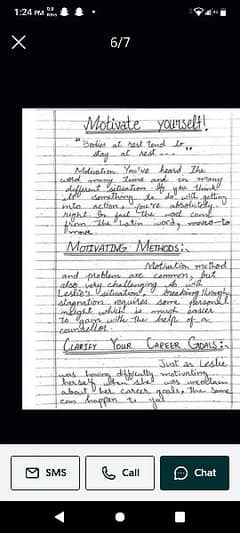 1:24 PM
6/7
Motivate yourself!
"Bodies at rest tend to
stay at rest..."
Motivation You've heard the
word many time and in many
different situation If you think
something to do with getting
into action, you're absolutely
right. In fact the word come
from the Latin word, moves-to
move.
MOTIVATING METHODS:
Motivation method
and problem are common, but
also very challenging. As with
Leslie's situation, breaking through
stagnation requires some personal
insight which is much easier
to gain with the help of a
counsellor.
CLARIFY YOUR CAREER GOALS:
Just as Leslie
was having difficulty motivating
herself when she was uncertain
about her career goals, the same
can happen to you
SMS
Call
Chat